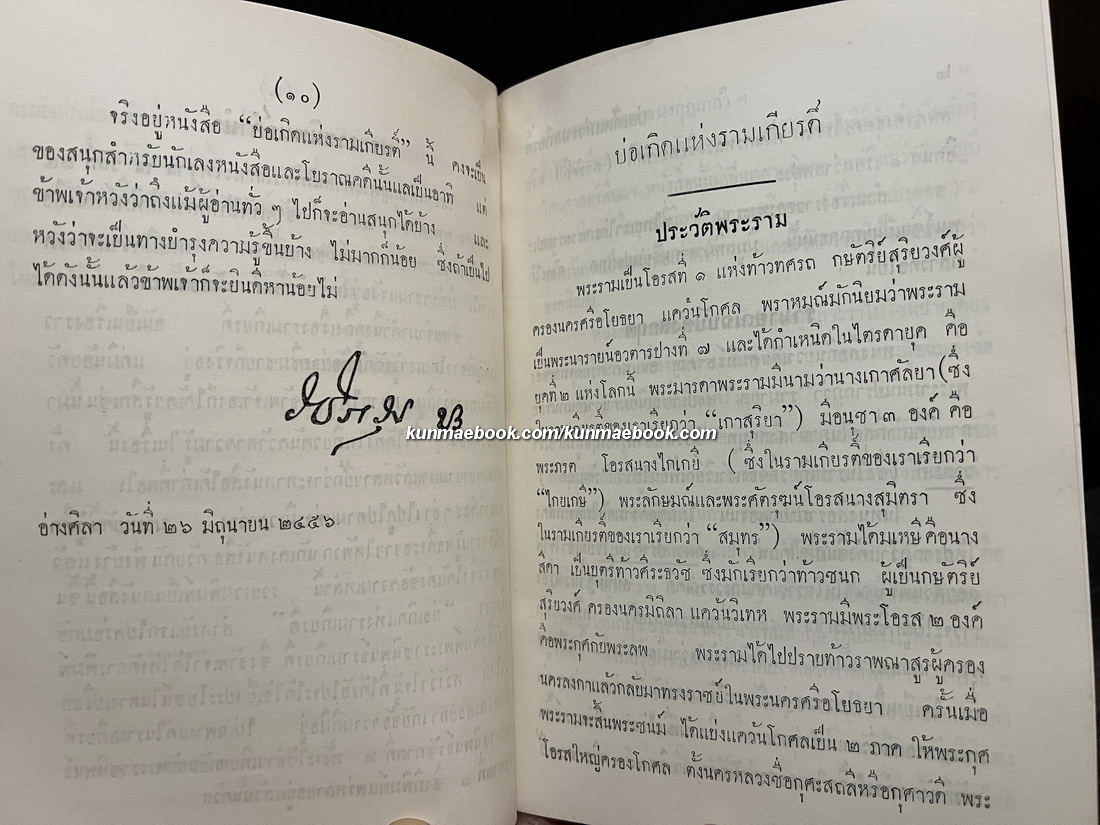 (๑๐)
จริงอยู่หนังสือ “บ่อเกิดแห่งรามเกียรติ์” นี้ คงจะเป็น
ของสนุกสำหรับนักเลงหนังสือและโบราณคดีนั้นแลเป็นอาทิ แต่
ข้าพเจ้าหวังว่าถึงแม้ผู้อ่านทั่ว ๆ ไปก็จะอ่านสนุกได้บ้าง และ
หวังว่าจะเป็นทางบำรุงความรู้ขึ้นบ้าง ไม่มากก็น้อย ซึ่งถ้าเป็นไป
ได้ดังนั้นแล้วข้าพเจ้าก็จะยินดีหาน้อยไม่
อ่างศิลา วันที่ ๒๖ มิถุนายน ๒๔๕๖
บ่อเกิดแห่งรามเกียรติ์
ประวัติพระราม
พระรามเป็นโอรสที่ ๑ แห่งท้าวทศรถ กษัตริย์สุริยวงศ์ผู้
ครองนครศรีอโยธยา แคว้นโกศล พราหมณ์มักนิยมว่าพระราม
เป็นพระนารายน์อวตารปางที่ ๗ และได้กำเหนิดในไตรดายุค คือ
ยุคที่ ๒ แห่งโลกนี้ พระมารดาพระรามมีนามว่านางเกาศัลยา (ซึ่ง
ในรามเกียรติ์ของเราเรียกว่า “เกาสุริยา”) มีอนุชา ๓ องค์ คือ
kunmaebook.com/kunmaebook.com
พระภรต โอรสนางไกเกยี (ซึ่งในรามเกียรติ์ของเราเรียกว่า
“ไกยเกษี”) พระลักษมณ์และพระศัตรุฆน์โอรสนางสุมิตรา ซึ่ง
ในรามเกียรติ์ของเราเรียกว่า “สมุทร”) พระรามได้มเหษีคือนาง
สีดา เป็นบุตรีท้าวศีระธวัช ซึ่งมักเรียกว่าท้าวชนก ผู้เป็นกษัตริย์
สุริยวงศ์ ครองนครมิถิลา แคว้นวิเทห พระรามมีพระโอรส ๒ องค์
คือพระกุศกับพระลพ พระรามได้ไปปรายท้าวราพณาสูรผู้ครอง
นครลงกาแล้วกลับมาทรงราชย์ในพระนครศรีอโยธยา ครั้นเมื่อ
พระรามจะสิ้นพระชนม์ ได้แบ่งแคว้นโกศลเป็น ๒ ภาค ให้พระกุศ
โอรสใหญ่ครองโกศล ตั้งนครหลวงชื่อกุศะสถลีหรือกุศาวดี พระ